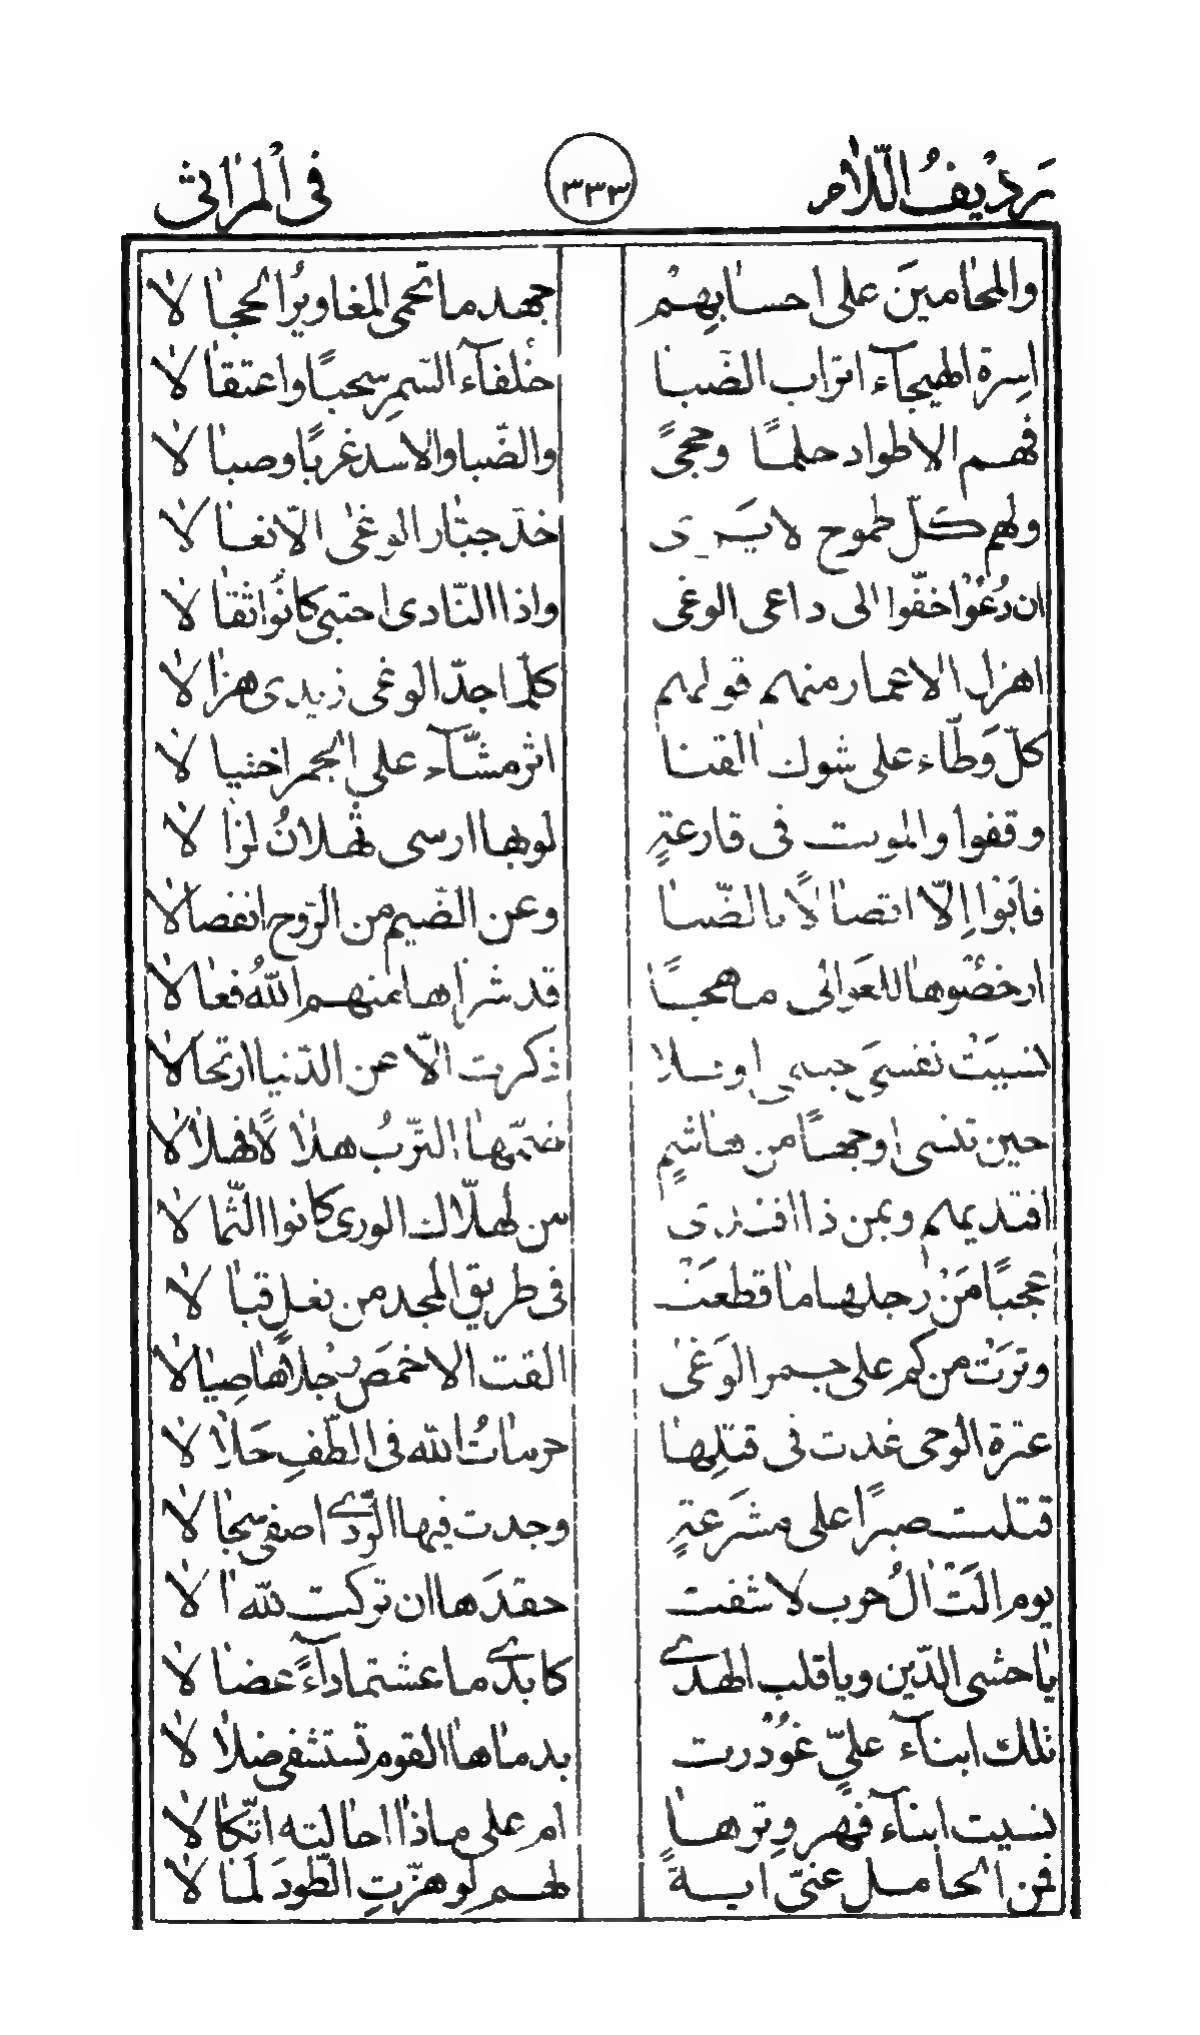 رديف اللام ٣٣٣ فى المراثى
والمحامين على احسابهم جهد ما تحمى المغاوير الحجالا
اسرة الهيجآء اتراب الضبا خلفآء السّمر سحبًا واعتقالا
فهم الاطواد حلمًا وحجىً والضّبا والاسد غربًا وصيالا
ولهم كلّ طموح لا يرى خدّ جبّار الوغى الّا نعالا
ان دُعُوا خفّوا الى داعى الوغى واذا النّادى احتبى كانوا ثقالا
اهزل الاعمار منهم قولهم كلّما جدّ الوغى زيدى هزالا
كلّ وَطّاء على شوك القنا اثر مشّآء على الجمر اختيالا
وقفوا والموت فى قارعةٍ لو بها ارسى ثهلانُ لزالا
فابَوْا اِلّا اتصالًا بالضّبا وعن الضّيم من الرّوح انفصالا
ارخصُوها للعَوالى مهجًا قد شراها منهم اللهُ فعالا
نسيَتْ نفسىَ جسمى او فلا ذكرت الّا عن الدّنيا ارتحالا
حين تنسى اوجهًا من هاشمٍ ضمّها التّربُ هلالًا فهلالا
افتديهم وبمن ذا افتدى من لهلّاك الورى كانوا الثّمالا
عجبًا مَنْ رجلها ما قطعَتْ فى طريق المجد من نعل قبالا
وترَتْ من كم على جمر الوَغى القت الاخمصَ رجلاها صيالا
عترة الوحى غدت فى قتلها حرماتُ الله فى الطّفِ حَلالا
قتلت صبرًا على مشرَعةٍ وجدت فيها الرّدى اصفى سجالا
يوم الَتْ الُ حرب لا شفت حقدَها ان تركت لله الا
يا حشى الدّين ويا قلب الهدى كابدى ما عشتما دآءً عضالا
تلك ابنآء علىٍّ غُوْدرت بدماها القوم تستشفى ضلالا
نسيت ابنآء فهر وترها ام على ماذا احالته اتّكالا
فمن الحامل عنّى ايةً لهم لو هزّتِ الطّودَ لمالا